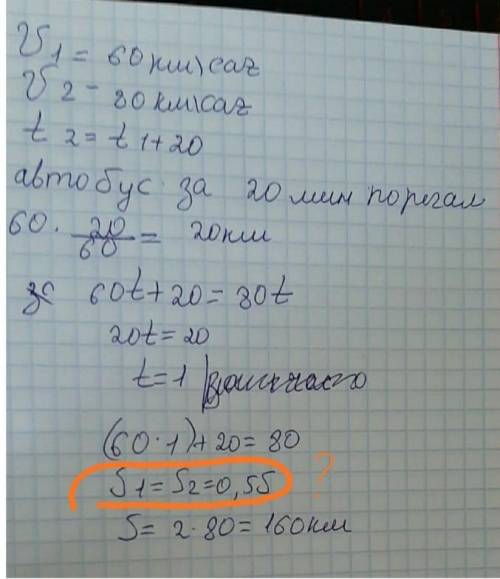 V1 = 60 км\саг
V2 - 80 км\саг
t2 = t1+20
автобус за 20 мин
60 · 20/60 = 20км
60t+20=80t
20t=20
t=1
(60·1)+20=80
S1=S2=0,5S ?
S= 2·80=160км